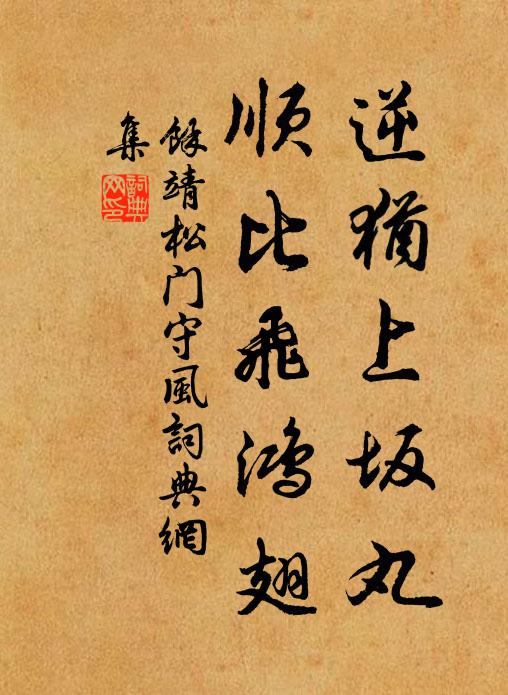 逆猶上坂丸
順比飛鴻翅
餘靖松门守風詞典網
集
詞典
网印